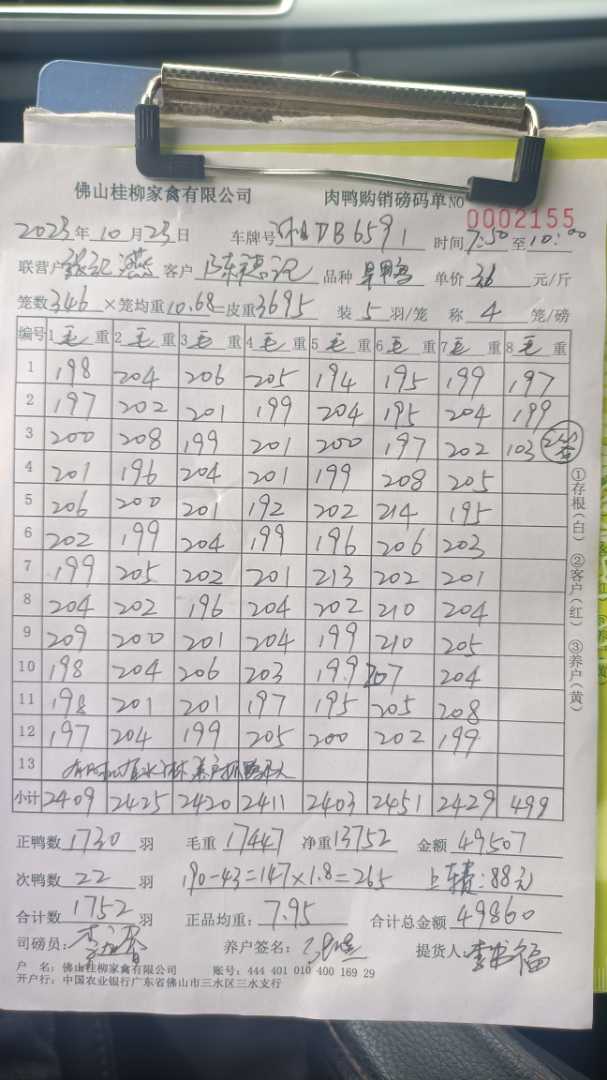 佛山桂柳家禽有限公司 肉鸭购销磅码单 NO 0002155
2023年10月23日 车牌号 DB6591 时间7:50至10:00
联营户 客户 陈 记 品种 单价3.6元/斤
笼数346×笼均重10.68=皮重3695 装5羽/笼 称4笼/磅
编号 1毛重 2毛重 3毛重 4毛重 5毛重 6毛重 7毛重 8毛重
1 198 204 206 205 194 195 199 197
2 197 202 201 199 204 195 204 199
3 200 208 199 201 200 197 202 103
4 201 196 204 201 199 208 205
5 206 200 201 192 202 214 195
6 202 199 204 199 196 206 203
7 199 205 202 201 213 202 201
8 204 202 196 204 202 210 204
9 209 200 201 204 199 210 205
10 198 204 206 203 199 207 204
11 198 201 201 197 195 205 208
12 197 204 199 205 200 202 199
13
小计 2409 2425 2420 2411 2403 2451 2429 499
①存根(白) ②客户(红) ③养户(黄)
正鸭数1730羽 毛重17447 净重13752 金额49507
次鸭数22羽 190-43=147×1.8=265 上车费:88元
合计数1752羽 正品均重:7.95 合计总金额49860
司磅员: 养户签名: 提货人:
户 名:佛山桂柳家禽有限公司 账号:444 401 010 400 169 29
开户行:中国农业银行广东省佛山市三水区三水支行